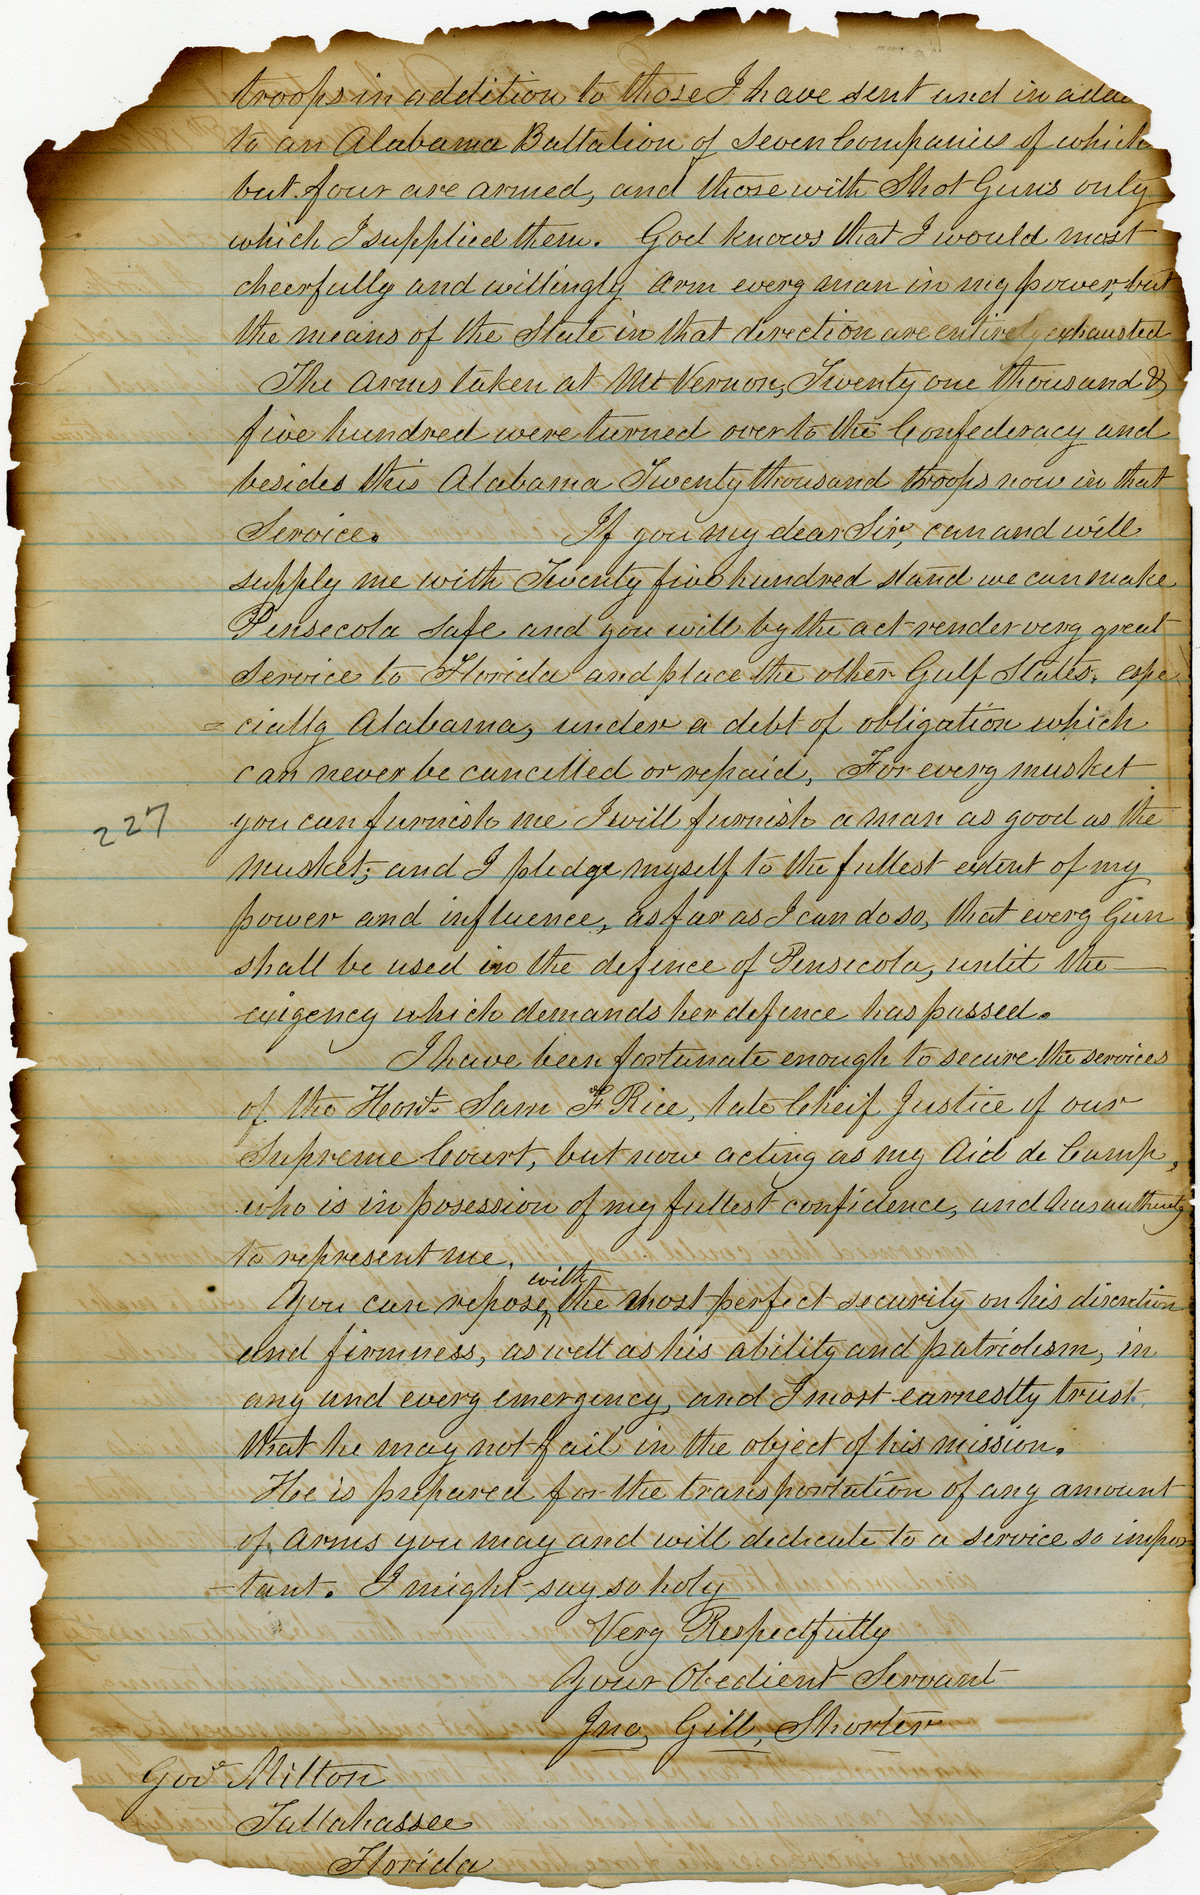 troops in addition to those I have sent and in addi
to an Alabama Battalion of Seven Companies of which
but four are armed, and those with Shot Guns only
which I supplied them. God knows that I would most
cheerfully and willingly Arm every man in my power, but
the means of the State in that direction are entirely exhausted
The Arms taken at Mt Vernon, Twenty one thousand &
five hundred were turned over to the Confederacy and
besides this Alabama Twenty thousand troops now in that
Service. If you my dear Sir, can and will
supply me with Twenty five hundred stand we can make
Pensecola Safe and you will by the act render very great
Service to Florida and place the other Gulf States, espe
= cially Alabama, under a debt of obligation which
can never be cancelled or repaid, For every musket
227
you can furnish me I will furnish a man as good as the
musket; and I pledge myself to the fullest extent of my
power and influence, as far as I can do so, that every Gun
shall be used in the defence of Pensecola, until the —
exigency which demands her defence has passed.
I have been fortunate enough to secure the services
of the Honl. Sam F Rice, late Cheif Justice of our
Supreme Court, but now acting as my Aid de Camp,
who is in posession of my fullest confidence, and has authority
to represent me.
You can repose with the most perfect security on his discretion
and firmness, as well as his ability and patriotism, in
any and every emergency, and I most earnestly trust
that he may not fail in the object of his mission.
He is prepared for the transportation of any amount
of Arms you may and will dedicate to a service so impor
-tant. I might say so holy
Very Respectfully
Your Obedient Servant
Jno, Gill, Shorter
Govr Milton
Tallahassee
Florida